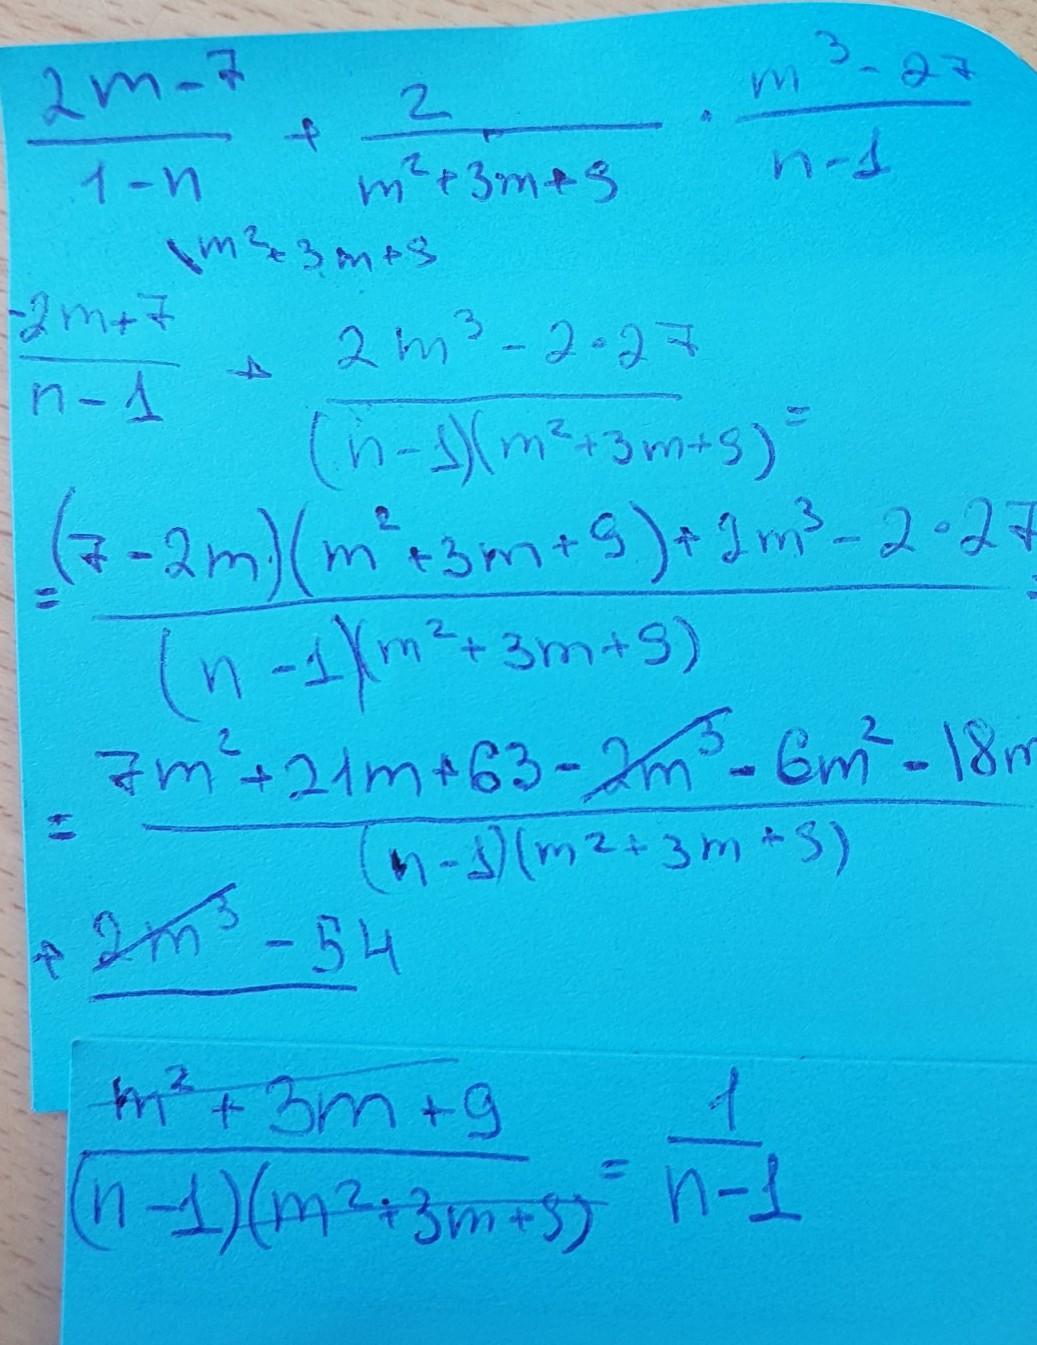 (2m-7)/(1-n) + 2/(m²+3m+9) · (m³-27)/(n-1)
\m²+3m+9
(-2m+7)/(n-1) + (2m³-2·27)/((n-1)(m²+3m+9)) =
= ((7-2m)(m²+3m+9)+2m³-2·27)/((n-1)(m²+3m+9)) =
= (7m²+21m+63-2m³-6m²-18m)/((n-1)(m²+3m+9))
+ 2m³-54
(m²+3m+9)/((n-1)(m²+3m+9)) = 1/(n-1)